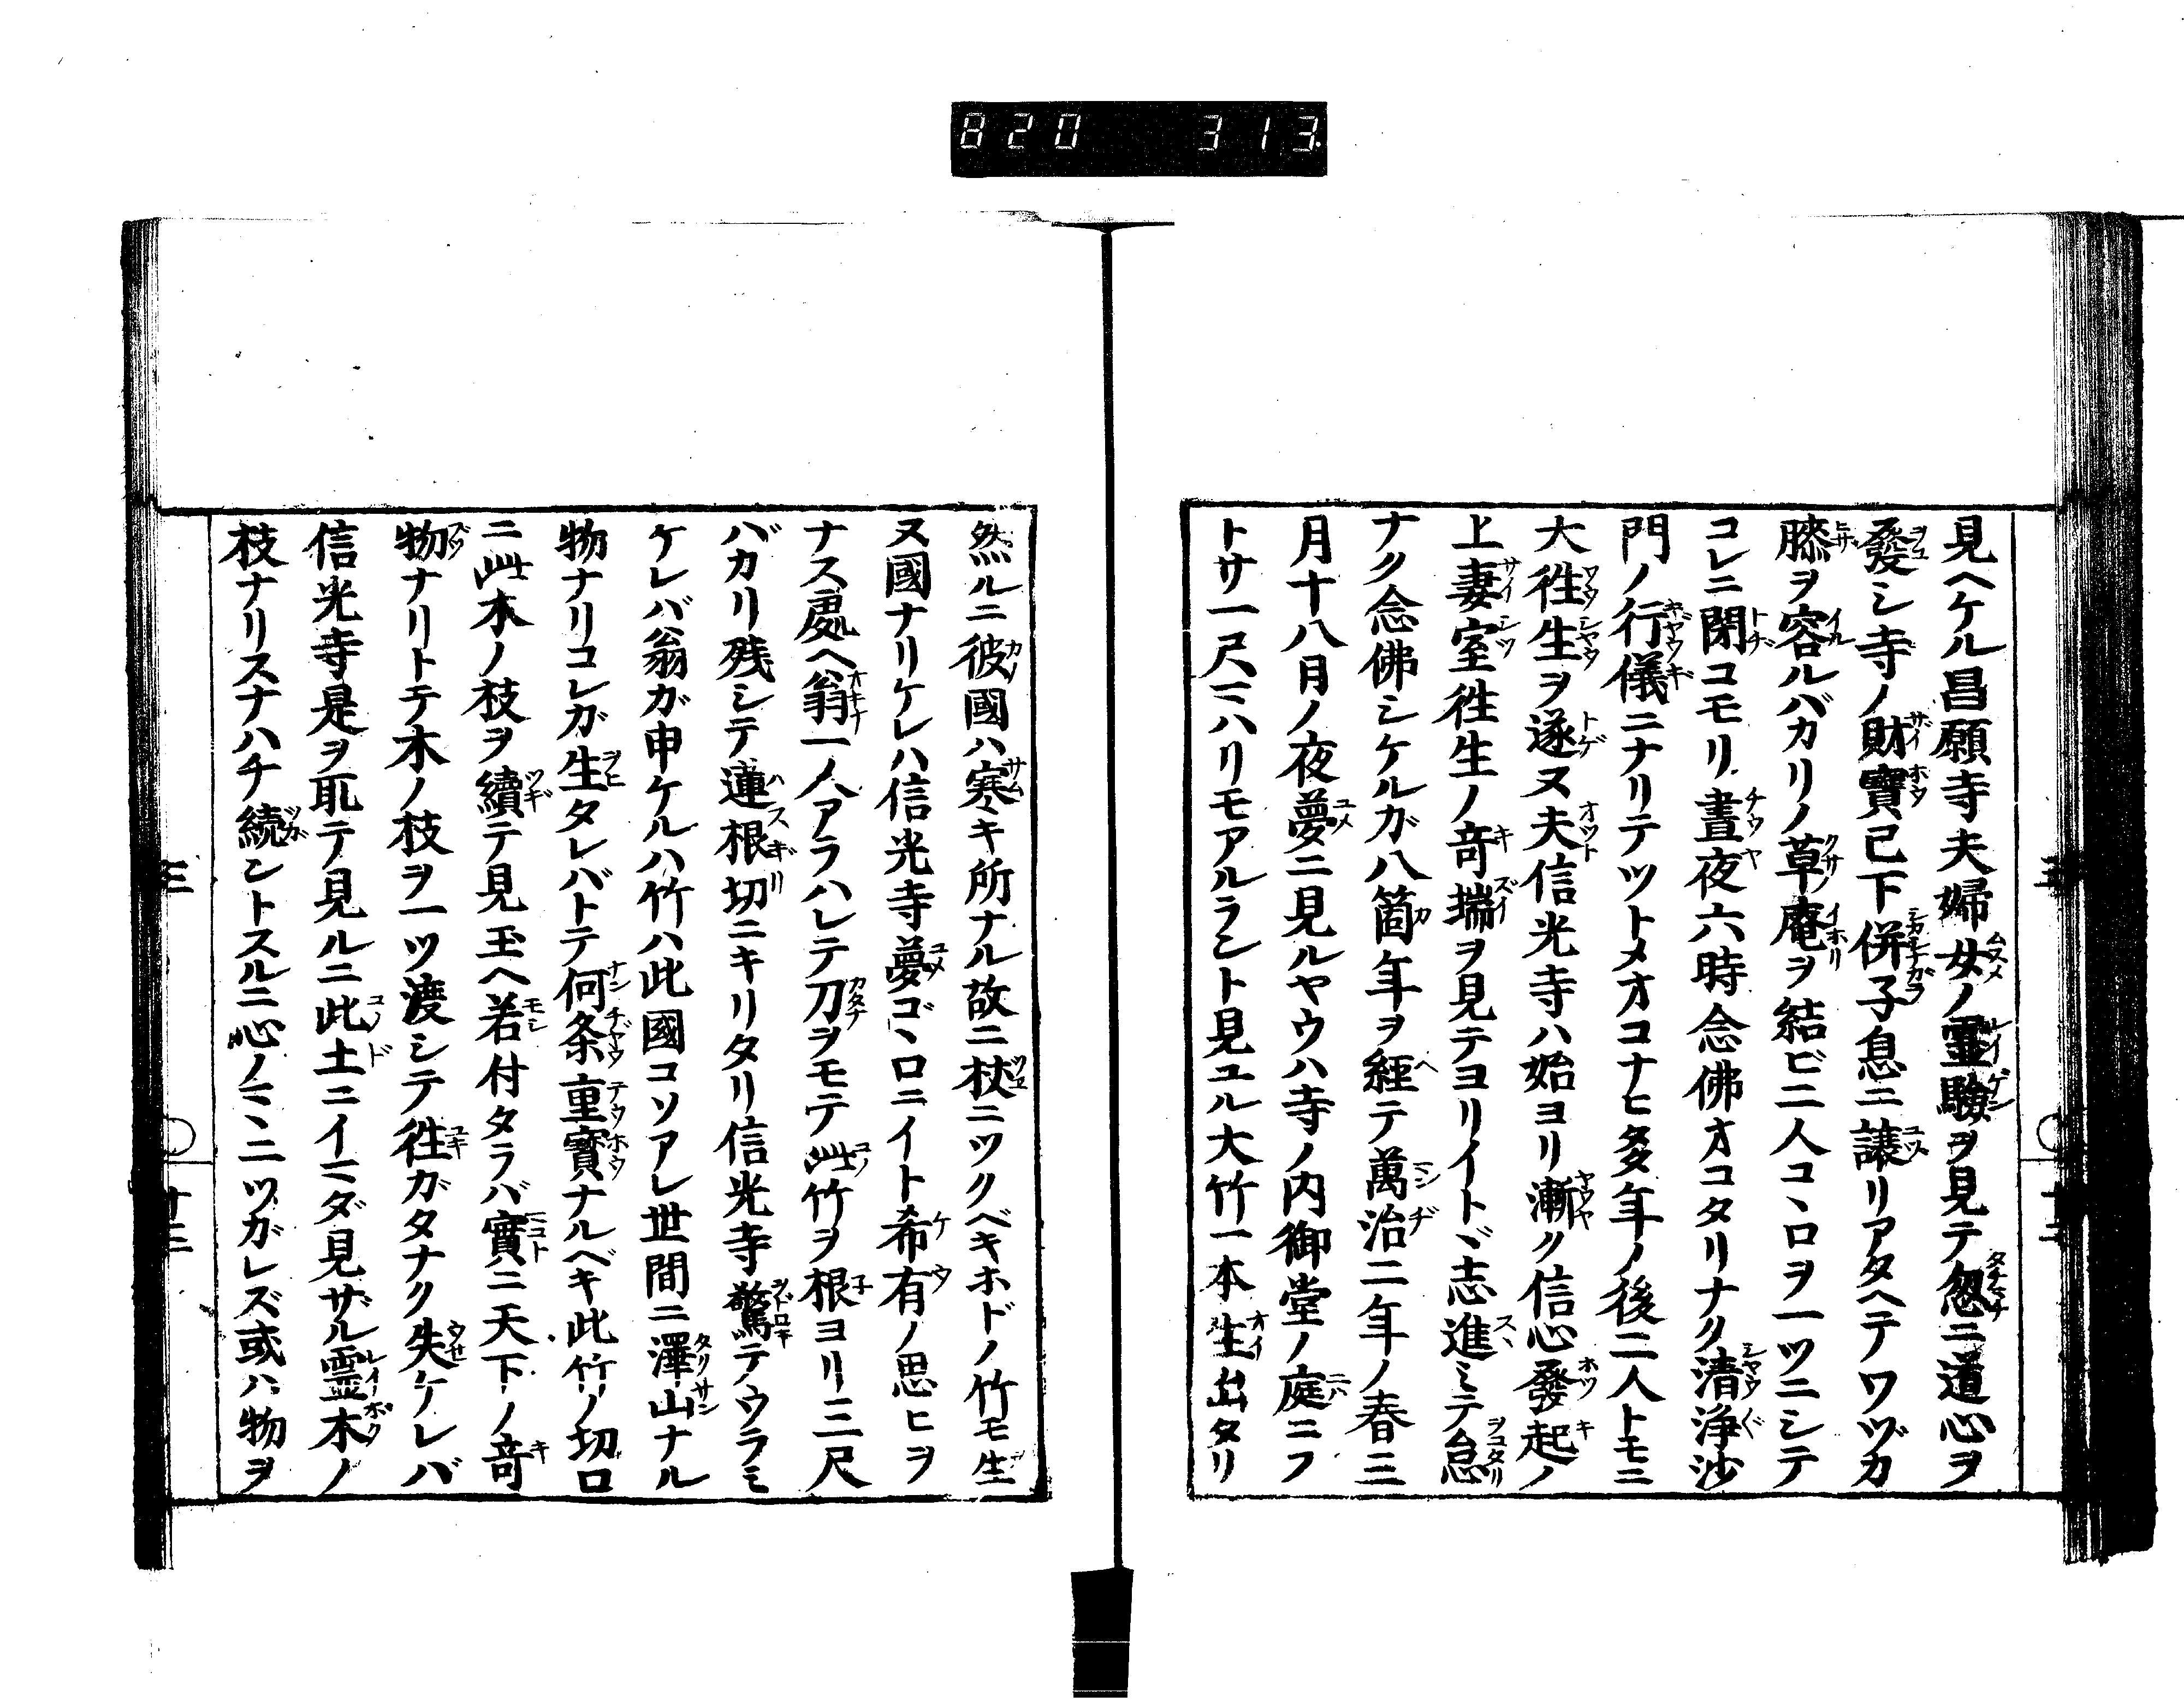 820 313
見ヘケル昌願寺夫婦女ノ霊驗ヲ見テ忽ニ道心ヲ
發シ寺ノ財寶已下併子息ニ譲リアタヘテワヅカ
膝ヲ容ルバカリノ草庵ヲ結ビ二人コヽロヲ一ツニシテ
コレニ閉コモリ晝夜六時念佛オコタリナク清浄沙
門ノ行儀ニナリテツトメオコナヒ多年ノ後二人トモニ
大徃生ヲ遂ヌ夫信光寺ハ始ヨリ漸ク信心發起ノ
上妻室徃生ノ竒瑞ヲ見テヨリイトヾ志進ミテ怠
ナク念佛シケルガ八箇年ヲ經テ萬治二年ノ春三
月十八月ノ夜夢ニ見ルヤウハ寺ノ内御堂ノ庭ニフ
トサ一尺マハリモアルラント見ユル大竹一本生出タリ
然ルニ彼國ハ寒キ所ナル故ニ杖ニツクベキホドノ竹モ生
ヌ國ナリケレハ信光寺夢ゴヽロニイト希有ノ思ヒヲ
ナス處ヘ翁一人アラハレテ刀ヲモテ此竹ヲ根ヨリ三尺
バカリ残シテ蓮根切ニキリタリ信光寺驚テウラミ
ケレバ翁ガ申ケルハ竹ハ此國コソアレ世間ニ澤山ナル
物ナリコレガ生タレバトテ何条重寶ナルベキ此竹ノ切口
ニ此木ノ枝ヲ續テ見玉ヘ若付タラバ實ニ天下ノ竒
物ナリトテ木ノ枝ヲ一ツ渡シテ徃ガタナク失ケレバ
信光寺是ヲ取テ見ルニ此土ニイマダ見ザル霊木ノ
枝ナリスナハチ続ントスルニ心ノマヽニツガレズ或ハ物ヲ
三
十三